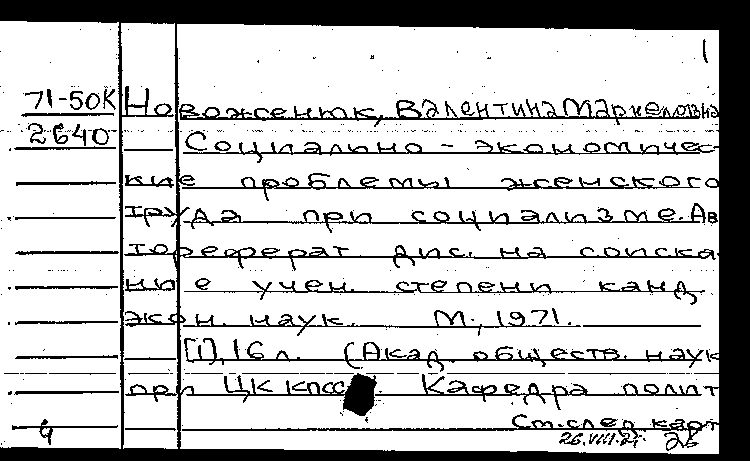 1
71-50К Новоженюк, Валентина Маркеловна
2640 Социально-экономичес-
кие проблемы женского
труда при социализме. Ав
тореферат дис. на соиска-
ние учен. степени канд.
экон. наук. М., 1971.
[1], 16 л. (Акад. обществ. наук
при ЦК КПСС. Кафедра полит
См. след. карт
4 26.VIII.71. 26